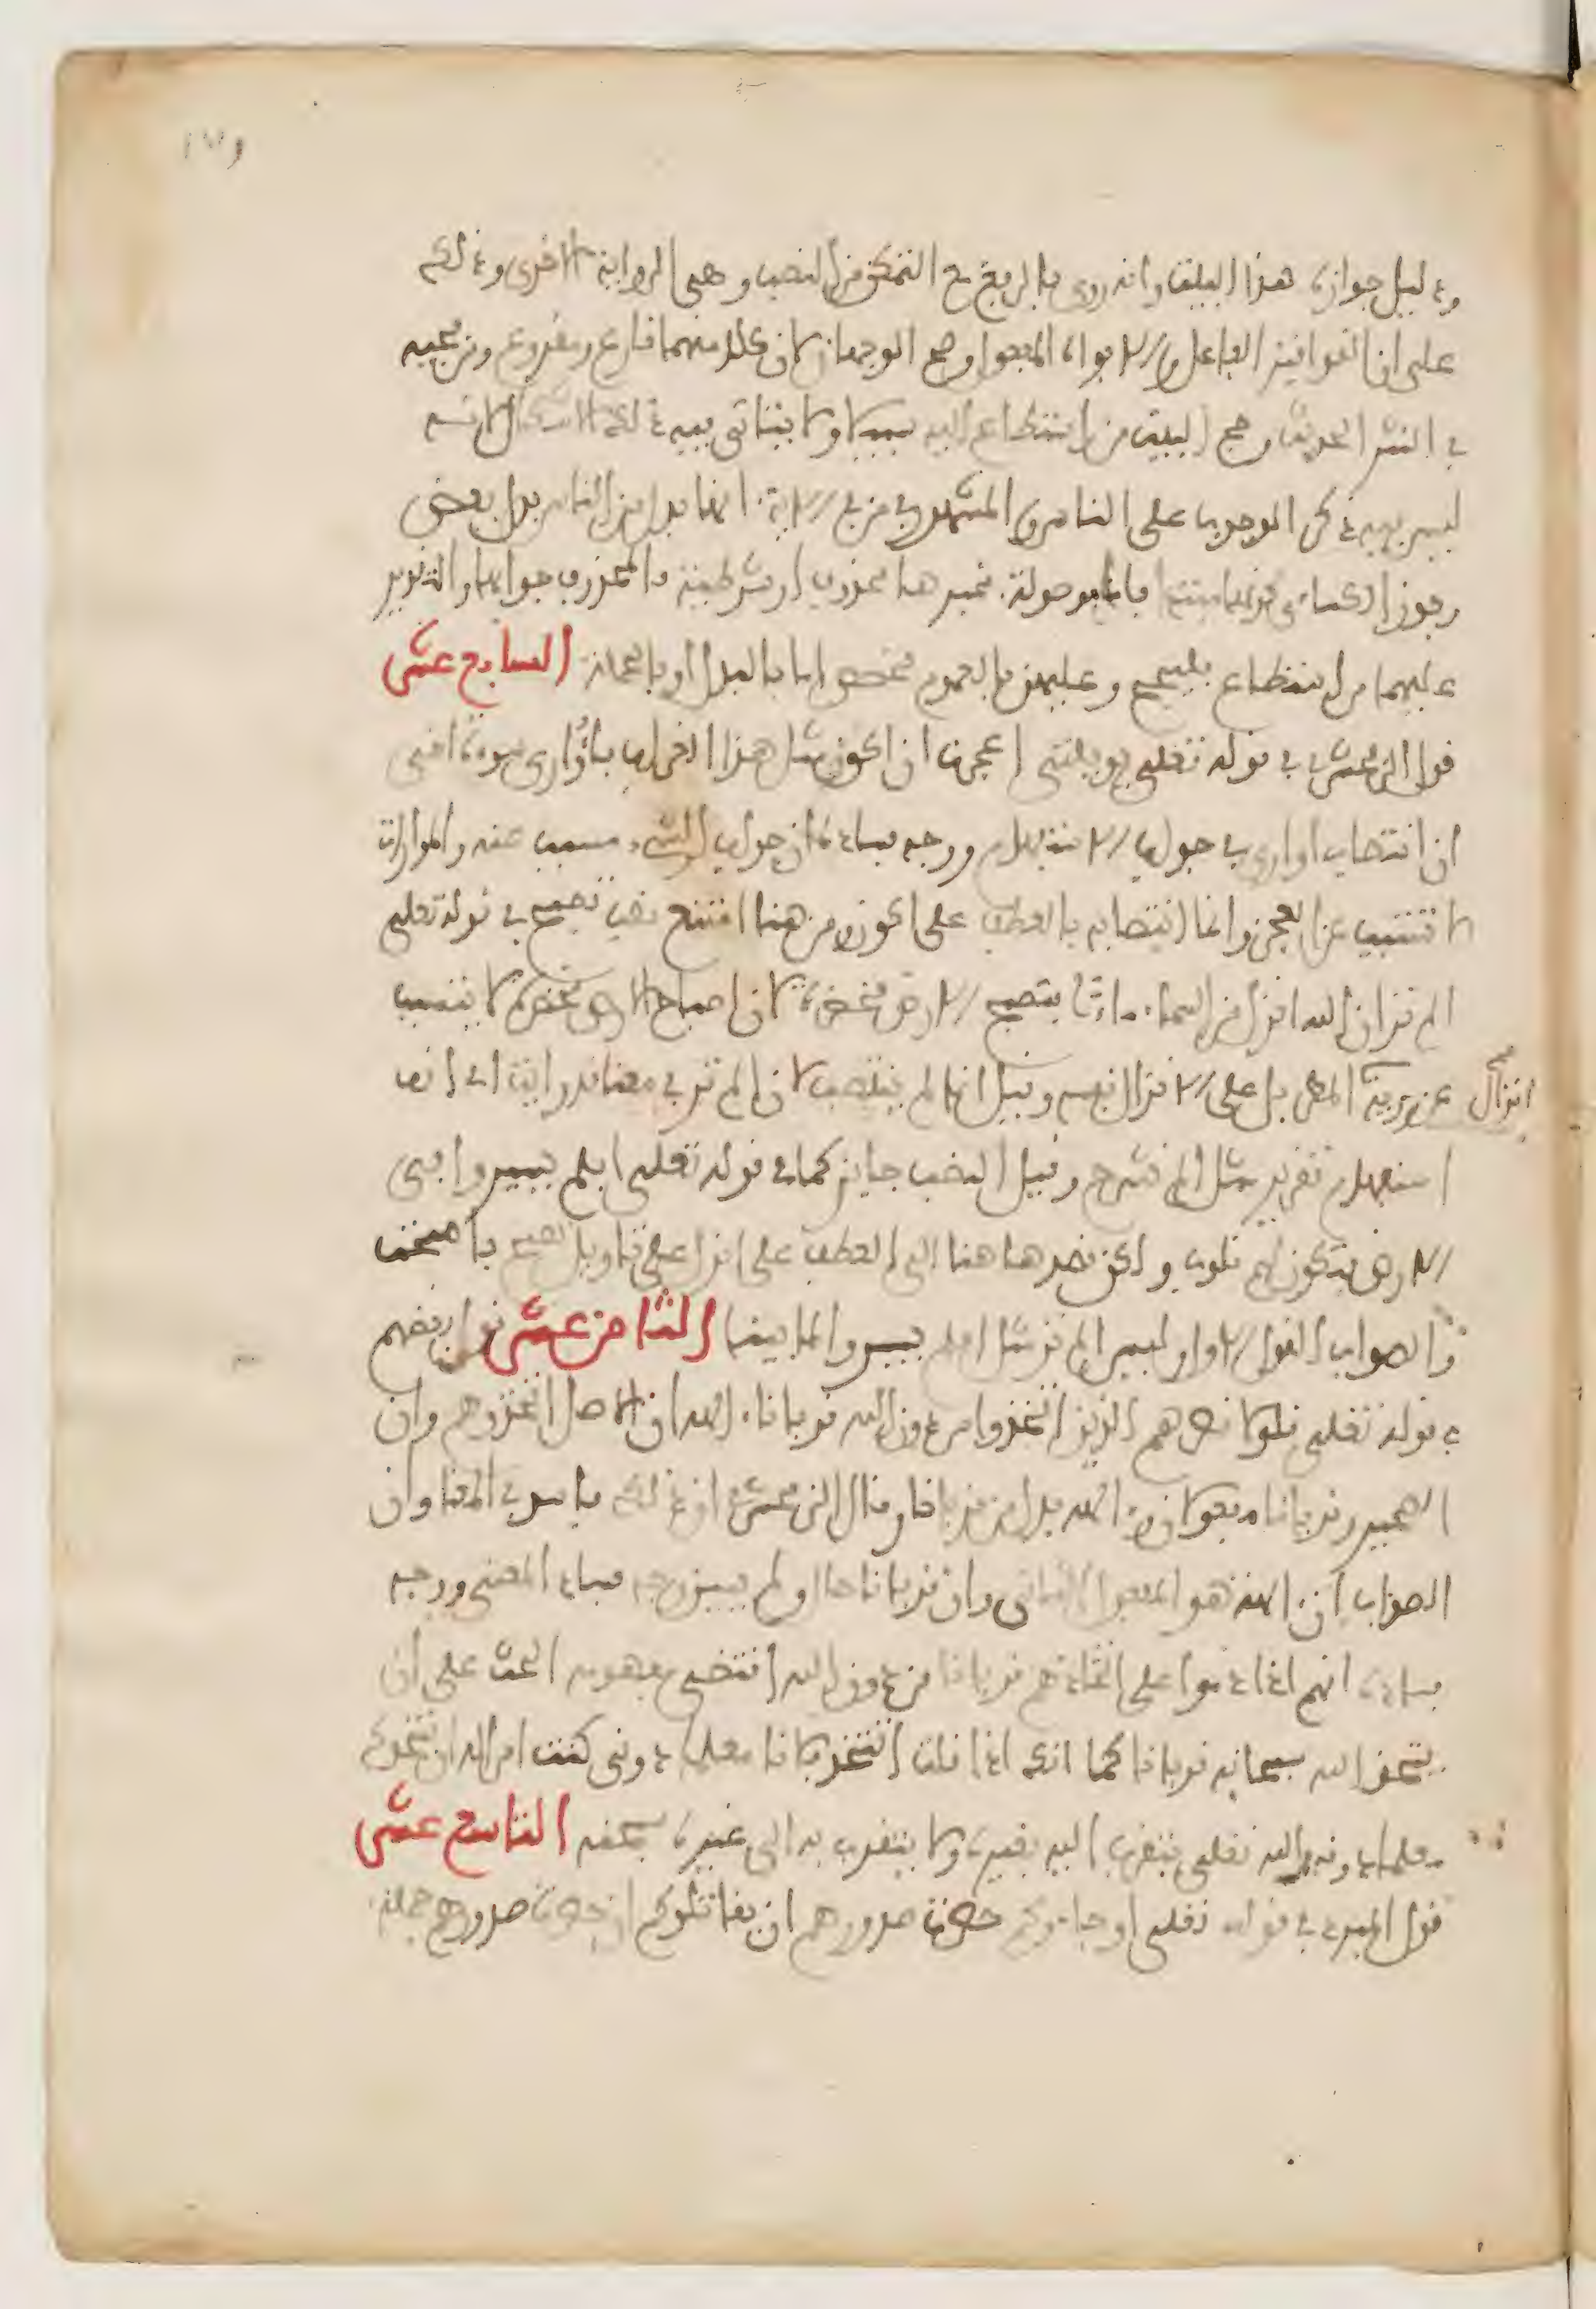 ودليل جوازه هذا البيت وانه روى بالرفع مع التمكن من النصب وهى الرواية الاخرى وذلك
على ان القوافيز الفاعل والابواه المفعول وصح الوجهان لان كلا منهما قارع ومقروع ومن مجيه
في النثر الحديث وحج البيت من استطاع اليه سبيلا ولا يتاتى فيه ذلك الاشكال لانه
ليس فيه ذكر الوجوب على الناس والمشهور في من في الاية انها بدل من الناس بدل بعض
وجوز الكساءى كونها مبتدا فاما موصولة فخبرها محذوف او شرطية فالمحذوف جوابها والتقدير
عليهما من استطاع فليحج وعليهن فالعموم مخصص اما بالبدل او بالجملة السابع عشر
قول الزمخشرى في قوله تعلى يويلتى اعجزت ان اكون مثل هذا الغراب فاوارى سوءة اخى
ان انتصاب اوارى في جواب الاستفهام ووجه فساده ان جواب الشىء مسبب عنه والمواراة
لا تتسبب عن العجز وانما انتصابه بالعطف على اكون ومن هنا امتنع نصب تصبح في قوله تعلى
الم تر ان الله انزل من السماء ماء فتصبح الارض مخضرة لان اصباح الارض مخضرة لا يتسبب
عن رؤية المطر بل على الانزال نفسه وقيل انما لم ينتصب لان الم تر في معنا قد رايت اى انه
انزال صح
استفهام تقرير مثل الم نشرح وقيل النصب جايز كما في قوله تعلى افلم يسيروا في
الارض فتكون لهم قلوب ولكن قصد هنا الى العطف على انزل على تاويل تصبح باصبحت
والصواب القول الاول وليس الم تر مثل افلم يسيروا لما بينا الثامن عشر قول بعضهم
في قوله تعلى فلولا نصرهم الذين اتخذوا من دون الله قربانا الهة ان الاصل اتخذوهم وان
الضمير وقربانا مفعولان والهة بدل من قربانا وقال الزمخشرى ان ذلك فاسد في المعنا وان
الصواب ان الهة هو المفعول الثانى وان قربانا حال ولم يبين وجه فساد المعنى ووجه
فساده انهم اذا ذموا على اتخاذهم قربانا من دون الله اقتضى مفهومه الحث على ان
يتخذوا الله سبحانه قربانا كما انك اذا قلت اتتخذ فلانا معلما دونى كنت امرا له ان يتخذك
معلما دونه والله تعلى يتقرب اليه بغيره ولا يتقرب به الى غيره سبحنه التاسع عشر
قول المبرد في قوله تعلى او جاءوكم حصرت صدورهم ان يقاتلوكم ان حصرت صدورهم جملة